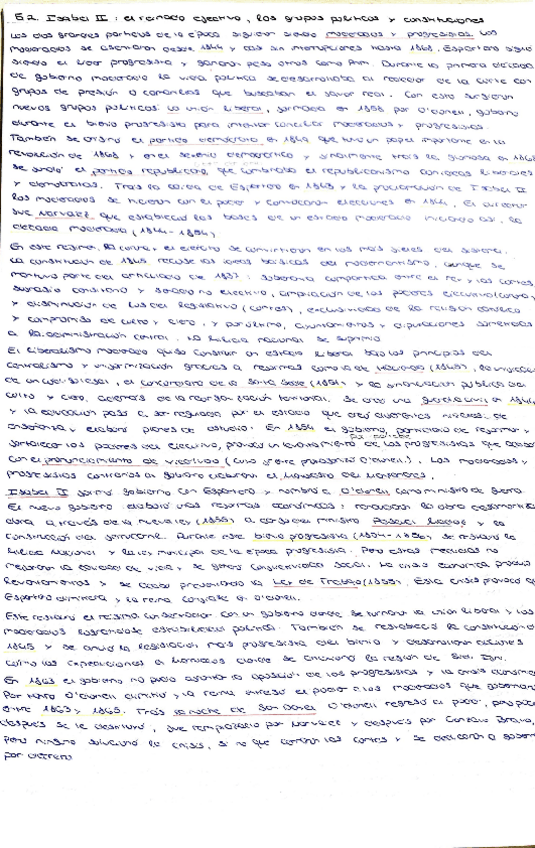 5.2. Isabel II: el reinado efectivo, los grupos políticos y constituciones
Los dos grandes partidos de la época siguieron siendo moderados y progresistas. Los
moderados se desde 1844 y casi sin interrupciones hasta 1868. Espartero siguió
siendo el líder progresista y ganaron peso otros como Prim. Durante la primera década
de gobierno moderado la vida política se desarrollaba al rededor de la corte con
grupos de presión o camarillas que buscaban el favor real. Con esto surgieron
nuevos grupos políticos: la unión liberal, formada en 1858 por O'donell, gobernó
durante el bienio progresista para intentar conciliar moderados y progresistas
También se originó el partido demócrata en 1849 que tuvo un papel importante en la
revolución de 1868 y en el sexenio democrático y finalmente tras la gloriosa en 1868
se fundó el partido republicano, que combinaba el republicanismo con ideas liberales
y demócratas. Tras la caída de Espartero en 1843 y la proclamación de Isabel II
los moderados se hicieron con el poder y convocaron elecciones en 1844, el director
fue Narváez que estableció las bases de un estado moderado iniciado así, la
década moderada (1844-1854)
En este régimen, la corona y el ejército se convirtieron en los más fieles del sistema.
La constitución de 1845 recoge las ideas básicas del moderantismo, aunque se
mantuvo parte del articulado de 1837: soberanía compartida entre el rey y las cortes,
sufragio censitario y senado no electivo, ampliación de los poderes ejecutivo (corona)
y disminución de los del legislativo (cortes), exclusividad de la religión católica
y compromiso de culto y clero, y por último, ayuntamientos y diputaciones sometidas
a la administración central. La milicia nacional se suprimió
El liberalismo moderado quiso construir un estado liberal bajo los principios del
centralismo y uniformización gracias a reformas como la de (1845), la
de un, el concordato de la Santa Sede (1851) y la financiación pública del
culto y clero, además de la reorganización territorial. Se creó una guardia civil en 1844
y la educación pasó a ser regulada por el estado que creó diferentes niveles de
enseñanza y elaboró planes de estudio. En 1854 el gobierno, partidario de reformar y
fortalecer los poderes del ejecutivo, provocó un levantamiento de los progresistas que acabó
con el pronunciamiento de Vicálvaro (cuyo frente protagonizó O'donell). Los moderados y
progresistas contrarios al gobierno elaboraron el Manifiesto del Manzanares.
Isabel II formó gobierno con Espartero y nombró a O'donell como ministro de guerra
El nuevo gobierno elaboró unas reformas económicas: reanudación la obra desamortiza
dora a través de la nueva ley (1855) a cargo del ministro Pascual Madoz y la
construcción del ferrocarril. Durante este bienio progresista (1854-1856), se restauró la
Milicia Nacional y la ley municipal de la época progresista. Pero estas medidas no
mejoraron la calidad de vida y se generó conflictividad social. La crisis económica produjo
levantamientos y se acabó presentando la Ley de Trabajo (1855). Esta crisis provocó que
Espartero dimitiera y la reina confiase a O'donell.
Este restauró el régimen conservador con un gobierno donde se turnaron la unión liberal y los
moderados lográndose estabilidad política. También se restableció la constitución
1845 y se anuló la legislación más progresista del bienio y desarrollaron acciones
como las expediciones a Marruecos donde se la región de Sidi Ifni.
En 1863 el gobierno no pudo aguantar la oposición de los progresistas y la crisis económica
Por tanto O'donell dimitió y la reina entregó el poder a los moderados que gobernaron
entre 1863 y 1865. Tras la noche de San Daniel O'donell regresó al poder, pero poco
después se le destituyó, fue remplazado por Narváez y después por González Bravo,
pero ninguno solucionó la crisis, si no que cerraron las cortes y se dedicaron a gobernar
por decreto